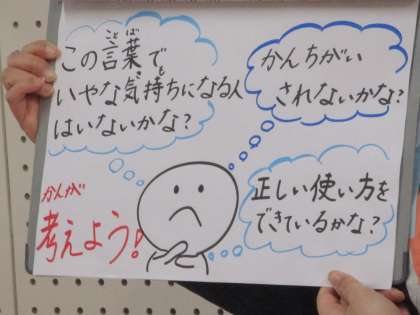 この言葉で
いやな気持ちになる人
はいないかな?
かんちがい
されないかな?
正しい使い方を
できているかな?
考えよう!